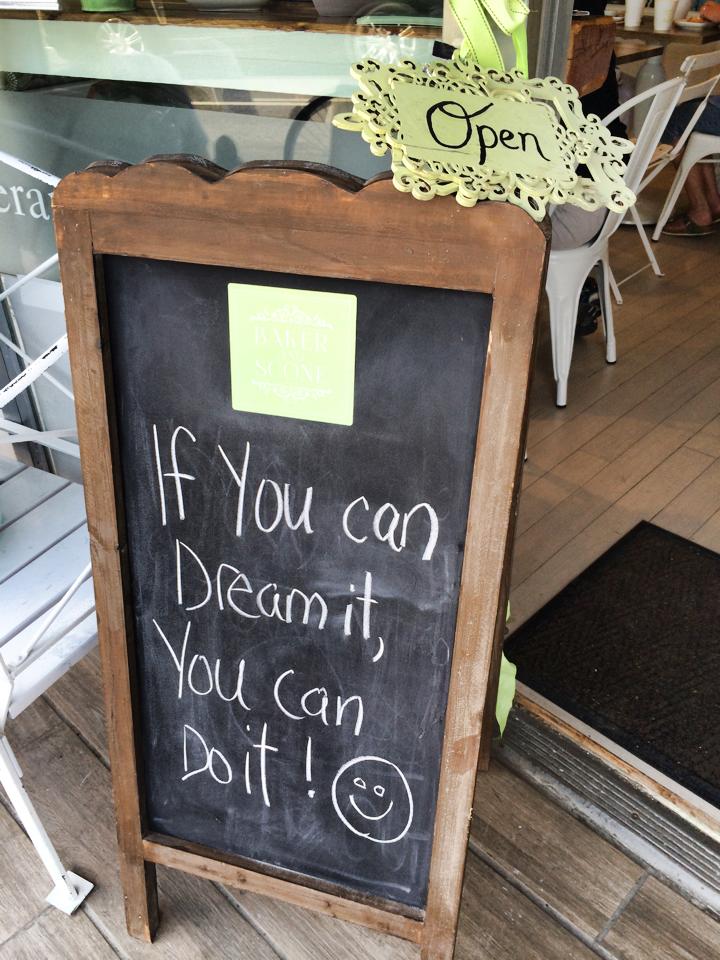 Open
BAKER
SCONE
If You can
Dream it,
You can
Do it!